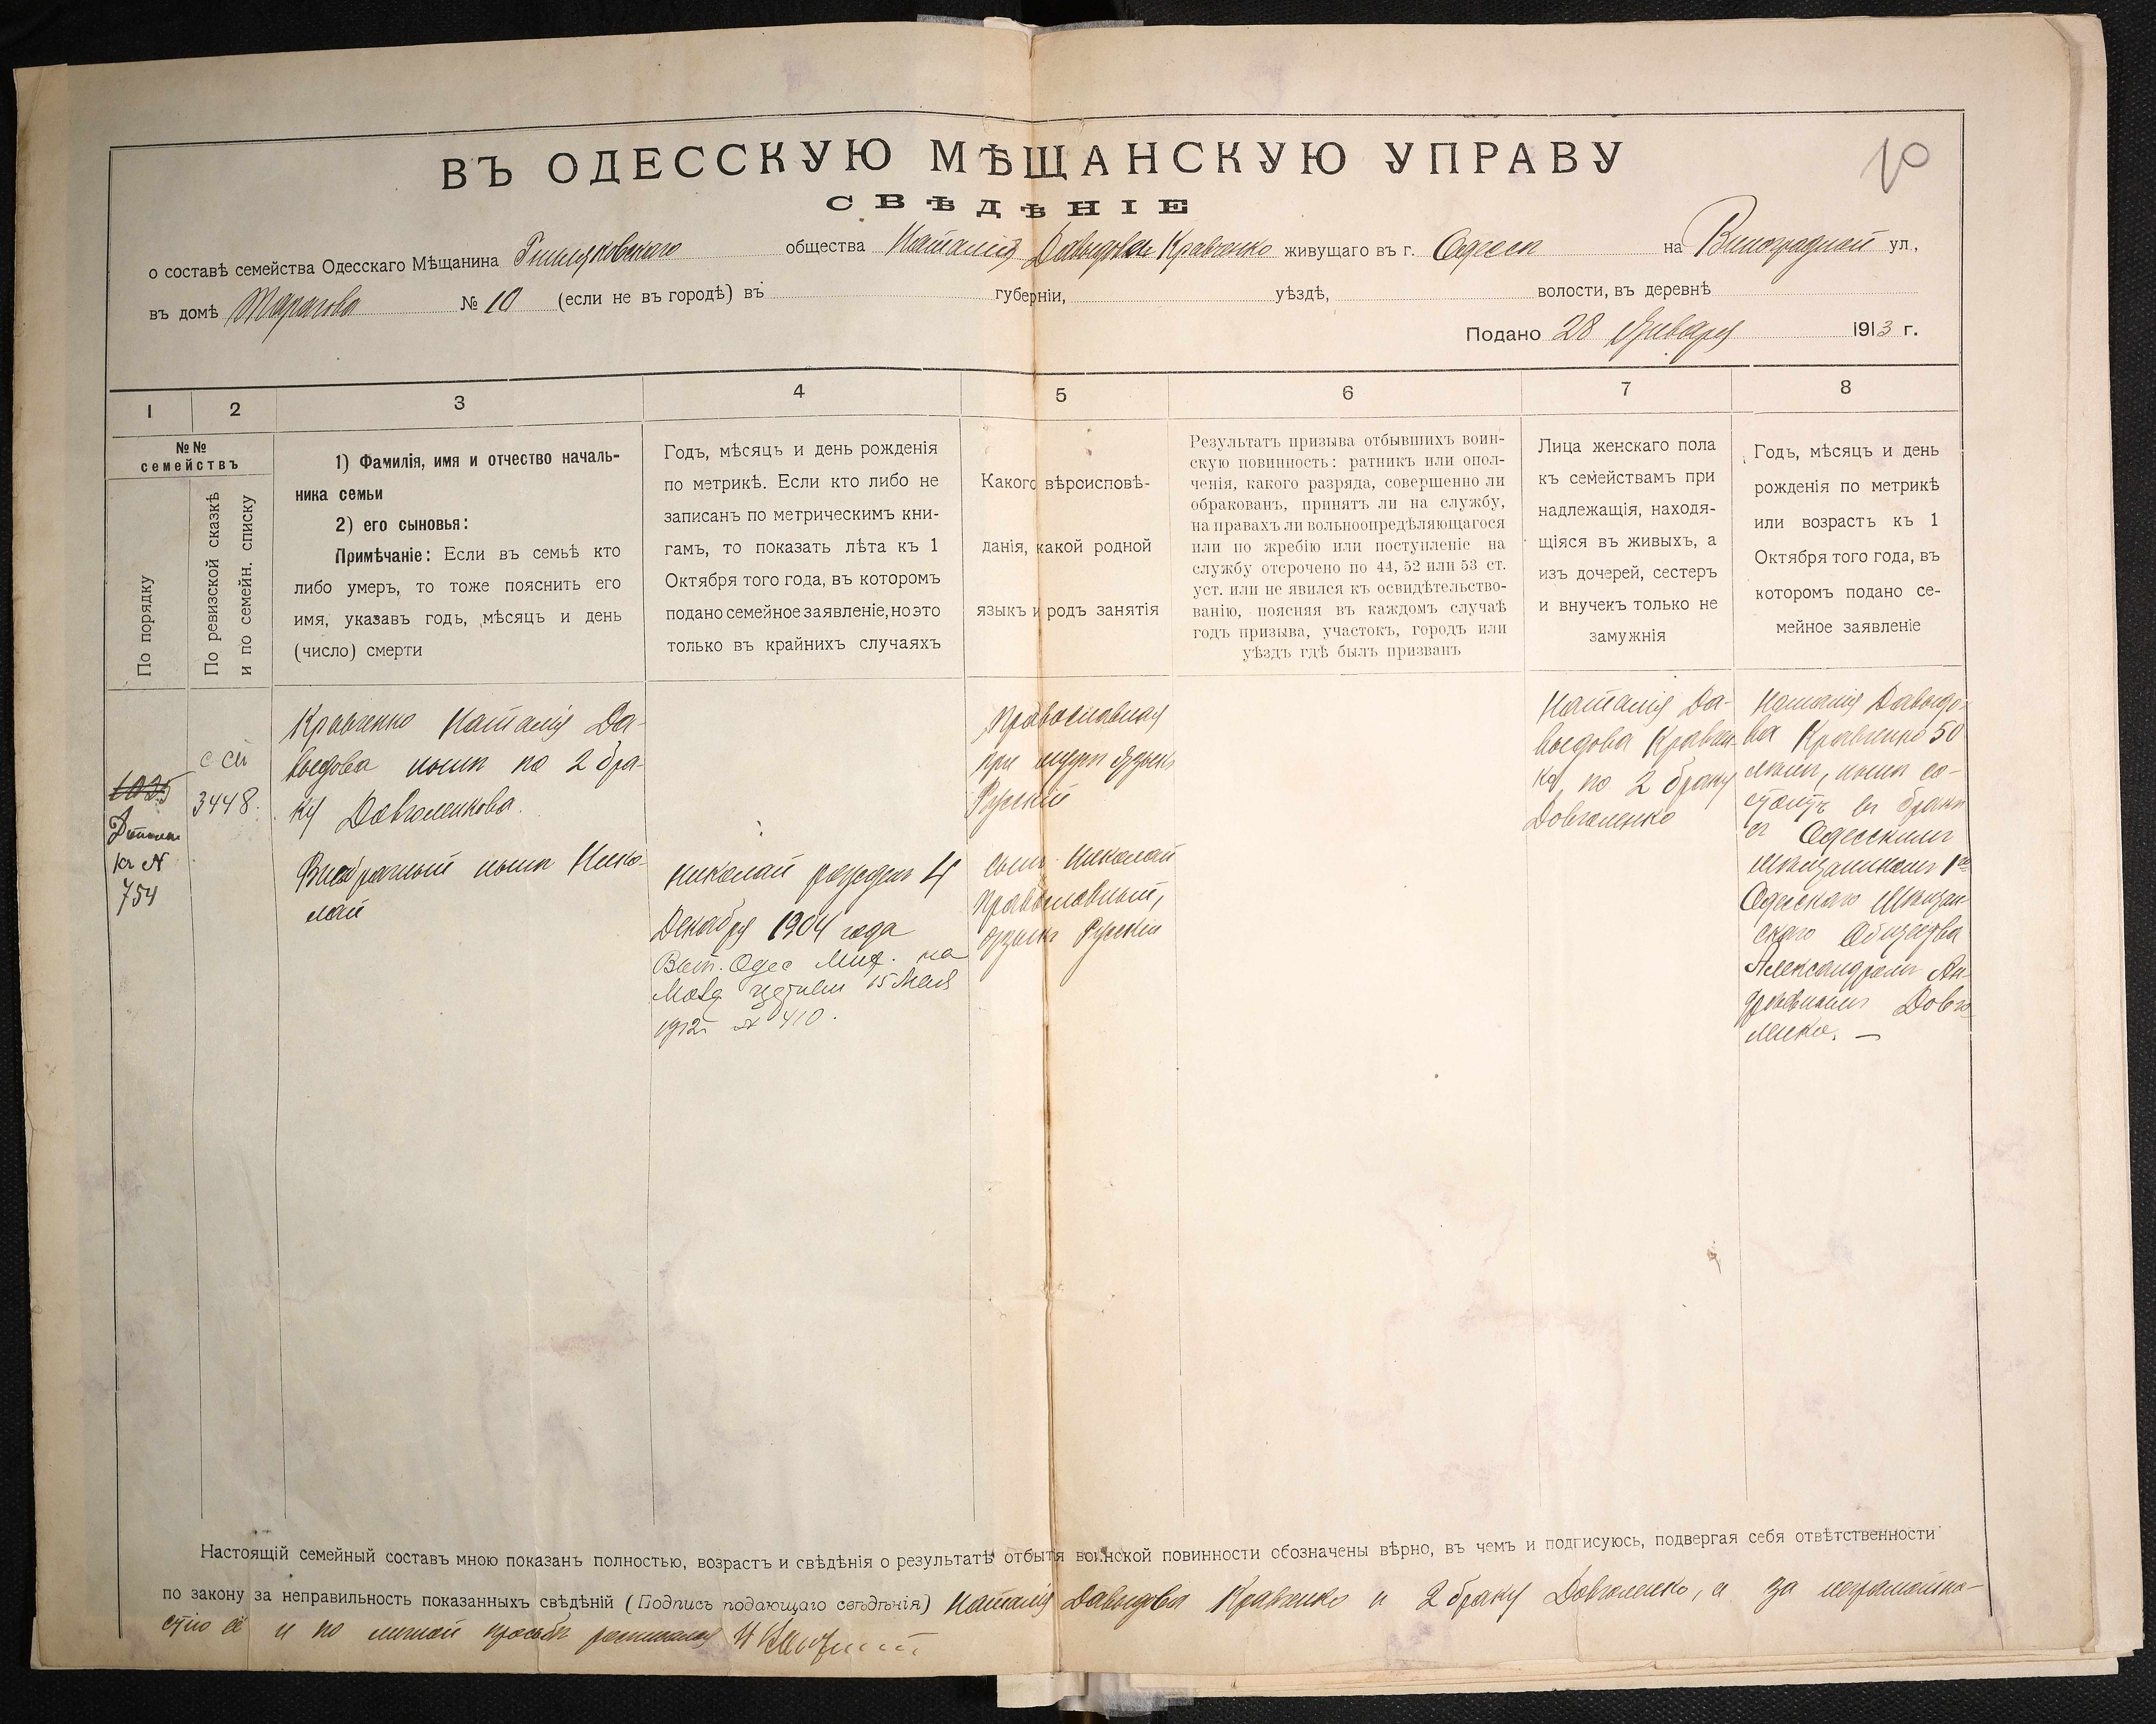 10
ВЪ ОДЕССКУЮ МѢЩАНСКУЮ УПРАВУ
СВѢДѢНІЕ
о составѣ семейства Одесскаго Мѣщанина общества Наталія Давыдова Кравченко живущаго въ г. Одесса на Виноградной ул.,
въ домѣ № 10 (если не въ городѣ) въ губерніи, уѣздѣ, волости, въ деревнѣ
Подано 28 Января 1913 г.
1 2 3 4 5 6 7 8
№№
семействъ
По порядку
По ревизской сказкѣ
и по семейн. списку
1) Фамилія, имя и отчество началь-
ника семьи
2) его сыновья:
Примѣчаніе: Если въ семьѣ кто
либо умеръ, то тоже пояснить его
имя, указавъ годъ, мѣсяцъ и день
(число) смерти
Годъ, мѣсяцъ и день рожденія
по метрикѣ. Если кто либо не
записанъ по метрическимъ кни-
гамъ, то показать лѣта къ 1
Октября того года, въ которомъ
подано семейное заявленіе, но это
только въ крайнихъ случаяхъ
Какого вѣроисповѣ-
данія, какой родной
языкъ и родъ занятія
Результатъ призыва отбывшихъ воин-
скую повинность: ратникъ или опол-
ченія, какого разряда, совершенно ли
обракованъ, принятъ ли на службу,
на правахъ ли вольноопредѣляющагося
или по жребію или поступленіе на
службу отсрочено по 44, 52 или 53 ст.
уст. или не явился къ освидѣтельство-
ванію, поясняя въ каждомъ случаѣ
годъ призыва, участокъ, городъ или
уѣздъ гдѣ былъ призванъ
Лица женскаго пола
къ семействамъ при
надлежащія, находя-
щіяся въ живыхъ, а
изъ дочерей, сестеръ
и внучекъ только не
замужнія
Годъ, мѣсяцъ и день
рожденія по метрикѣ
или возрастъ къ 1
Октября того года, въ
которомъ подано се-
мейное заявленіе
1035
къ №
754
3448
Кравченко Наталія Да-
выдова ныня по 2 бра-
ку Довголенкова.
Внебрачный Нико-
лай
Николай рожденъ 4
Декабря 1904 года
15 Мая
1912 № 410.
Православная
языкъ
Русскій
сынъ Николай
Православный,
языкъ Русскій
Наталія Да-
выдова Кравчен-
ко по 2 браку
Довголенко
Наталія Давыдо-
ва Кравченко 50
лѣтъ, ныня со-
стоитъ въ бракѣ
съ Одесскимъ
мѣщаниномъ 1го
Одесскаго Мѣщан-
скаго Общества
Александромъ Ан-
дреевымъ Довго-
ленко. —
Настоящій семейный составъ мною показанъ полностью, возрастъ и свѣдѣнія о результатѣ отбытя воинской повинности обозначены вѣрно, въ чемъ и подписуюсь, подвергая себя отвѣтственности
по закону за неправильность показанныхъ свѣдѣній (Подпись подающаго свѣдѣнія) Наталія Давыдова Кравченко и 2 браку Довголенко, а за неграмотно-
стію ея и по личной просьбѣ росписался